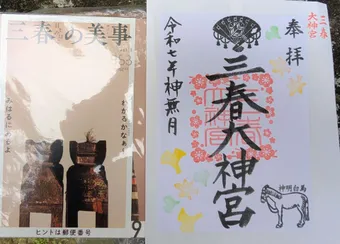 三春の美事
わかるかなぁ
みはるにこらんよ
ヒントは郵便番号
9
奉拝
三春
大神宮
三春大神宮
令和七年神無月
神明白馬